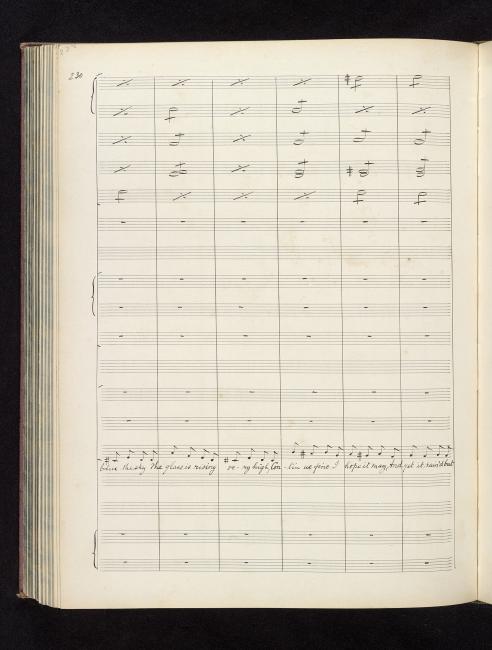 230
blue the sky The glass is rising ve-ry high, Con-tin-ue fine I hope it may, And yet it rain'd but